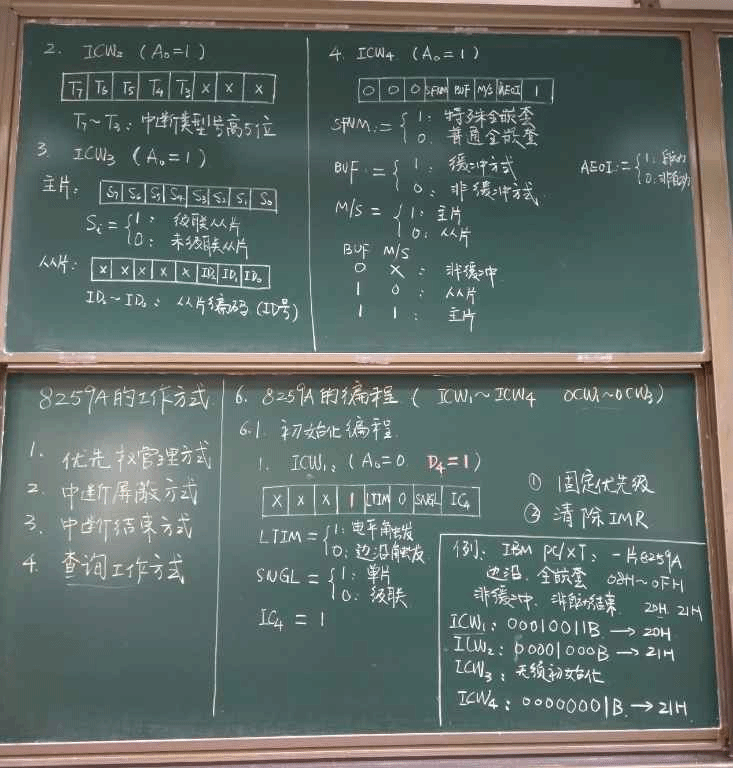 2. ICW₂ (A₀=1)
T₇ T₆ T₅ T₄ T₃ X X X
T₇~T₃: 中断类型号高5位
3. ICW₃ (A₀=1)
主片: S₇ S₆ S₅ S₄ S₃ S₂ S₁ S₀
Sᵢ = { 1: 级联从片
0: 未级联从片
从片: X X X X X ID₂ ID₁ ID₀
ID₂~ID₀: 从片编码(ID号)
4. ICW₄ (A₀=1)
0 0 0 SFNM BUF M/S AEOI 1
SFNM: = { 1: 特殊全嵌套
0: 普通全嵌套
BUF: = { 1: 缓冲方式
0: 非缓冲方式
AEOI: = { 1: 自动
0: 非自动
M/S = { 1: 主片
0: 从片
BUF M/S
0 X: 非缓冲
1 0: 从片
1 1: 主片
8259A的工作方式
1. 优先权管理方式
2. 中断屏蔽方式
3. 中断结束方式
4. 查询工作方式
6. 8259A的编程 (ICW₁~ICW₄ OCW₁~OCW₃)
6.1. 初始化编程
1. ICW₁: (A₀=0 D₄=1)
X X X 1 LTIM 0 SNGL IC₄
LTIM = { 1: 电平触发
0: 边沿触发
SNGL = { 1: 单片
0: 级联
IC₄ = 1
① 固定优先级
② 清除IMR
例: IBM PC/XT: 一片8259A
边沿. 全嵌套 08H~0FH
非缓冲. 非自动结束. 20H. 21H
ICW₁: 00010011B → 20H
ICW₂: 00001000B → 21H
ICW₃: 无须初始化
ICW₄: 00000001B. → 21H